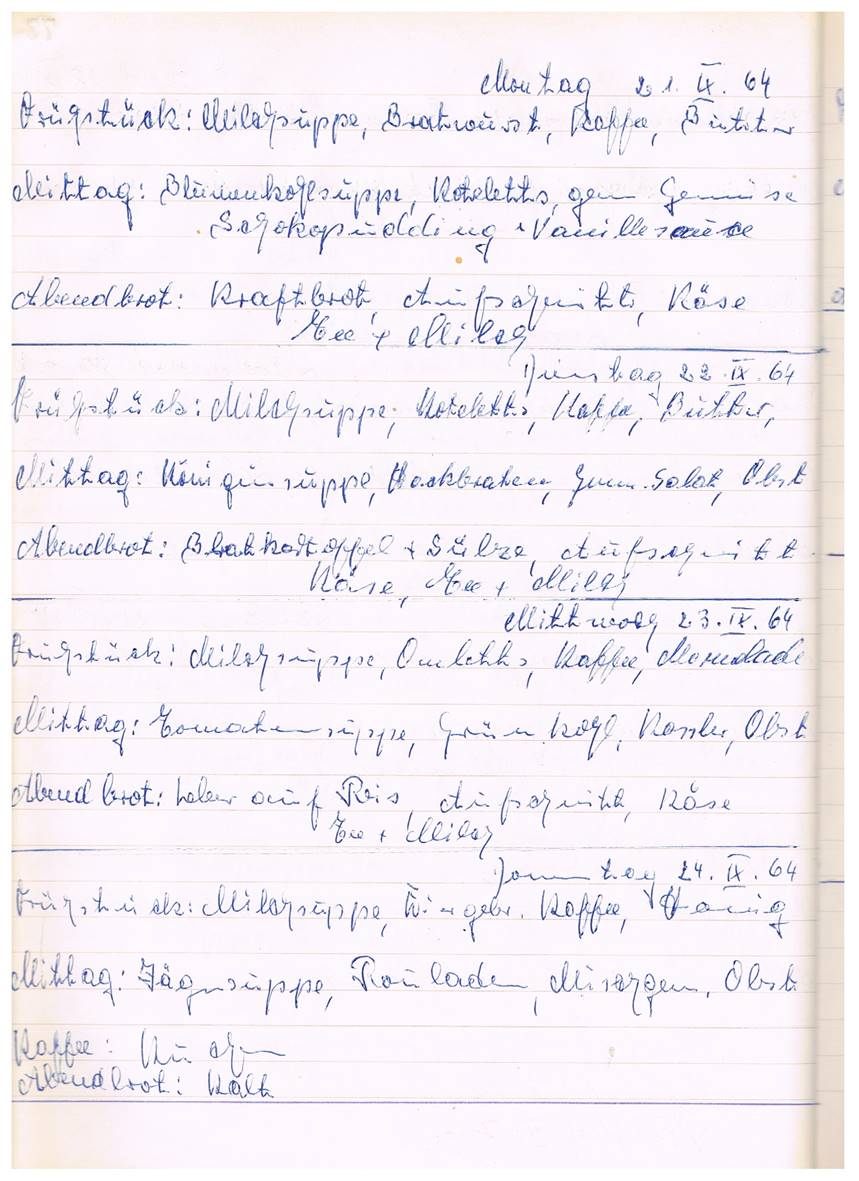 Montag 21. IX. 64
Frühstück: Milchsuppe, Bratwurst, Kaffee, Butter
Mittag: Blumenkohlsuppe, Koteletts, gem Gemüse
Schokopudding + Vanillesauce
Abendbrot: Kraftbrot, Aufschnitt, Käse
Tee + Milch
Dienstag 22. IX. 64
Frühstück: Milchsuppe, Koteletts, Kaffee, Butter,
Mittag: Königinsuppe, Hackbraten, Salat, Obst
Abendbrot: Bratkartoffel + Sülze, Aufschnitt
Käse, Tee + Milch
Mittwoch 23. IX. 64
Frühstück: Milchsuppe, Omletts, Kaffee, Marmelade
Mittag: Tomatensuppe, Grün Kohl, Kassler, Obst
Abendbrot: Leber auf Reis, Aufschnitt, Käse
Tee + Milch
Donnerstag 24. IX. 64
Frühstück: Milchsuppe, Kaffee, Honig
Mittag: Jägersuppe, Rouladen, Obst
Kaffee: Kuchen
Abendbrot: Kalt